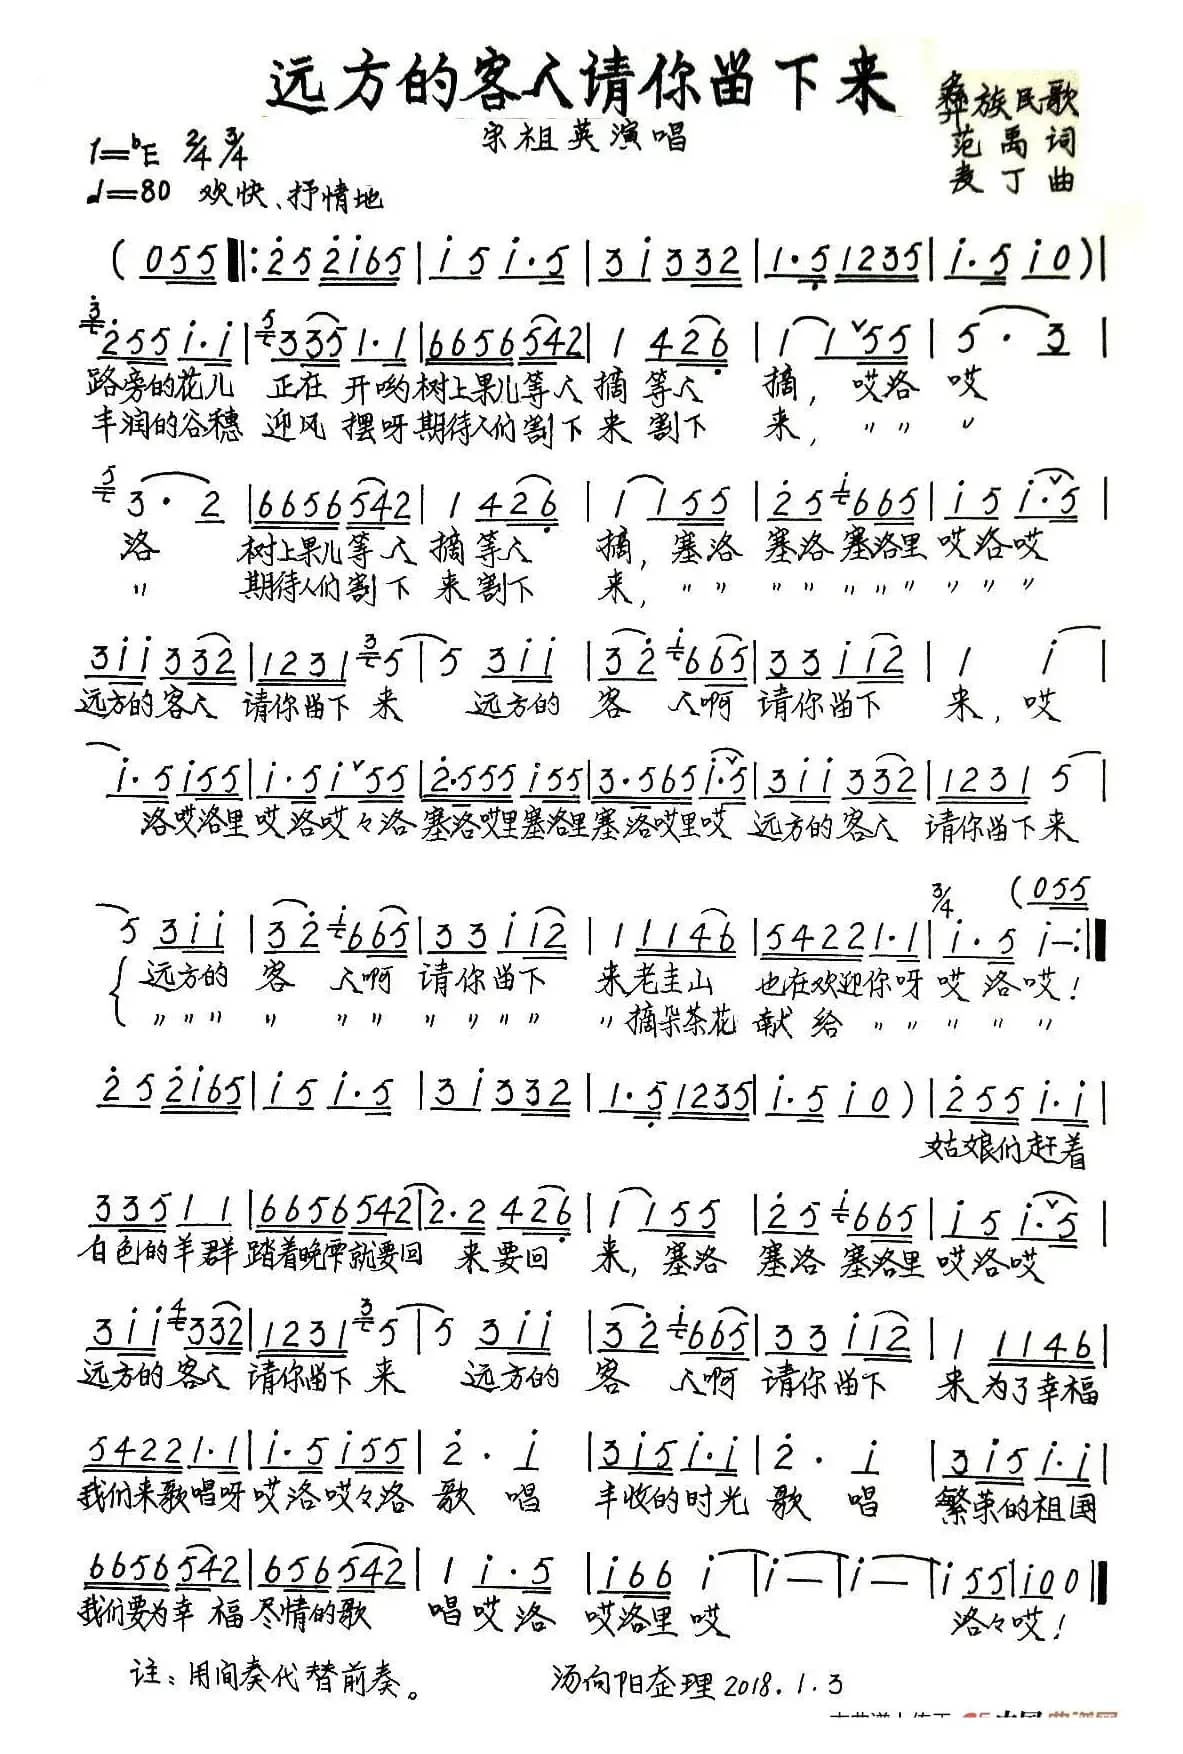 远方的客人请你留下来
宋祖英演唱
彝族民歌
范禹词
麦丁曲
1=♭E 2/4 3/4
♩=80 欢快、抒情地
( 055 ‖: 2̇5 2̇1̇65 | 1̇5 1̇·5 | 31̇ 332 | 1·5̣ 1235 | 1̇·5 1̇0 ) |
2̇55 1̇·1̇ | 335 1·1 | 6656 542 | 1 426̣ | 1 1 55 | 5·3 |
路旁的花儿 正在 开哟 树上果儿等人 摘 等人 摘, 哎洛 哎
丰润的谷穗 迎风 摆呀 期待人们割下 来 割下 来, 〃 〃 〃
3·2 | 6656 542 | 1 426̣ | 1 1 55 | 2̇5 665 | 1̇5 1̇·5 |
洛 树上果儿等人 摘 等人 摘, 塞洛 塞洛 塞洛里 哎洛哎
〃 期待人们割下 来 割下 来, 〃 〃 〃 〃 〃 〃 〃 〃 〃 〃
31̇1̇ 332 | 1231 5 | 5 31̇1̇ | 32̇ 665 | 33 1̇1̇2 | 1 1̇ |
远方的客人 请你留下 来 远方的 客 人啊 请你留下 来, 哎
1̇·5 1̇55 | 1̇·5 1̇55 | 2̇·555 1̇55 | 3·565 1̇·5 | 31̇1̇ 332 | 1231 5 |
洛哎洛里 哎洛哎々洛 塞洛哎里塞洛里 塞洛哎里哎 远方的客人 请你留下来
3/4 (055
5 31̇1̇ | 32̇ 665 | 33 1̇1̇2 | 1 11146 | 54221·1 | 1̇·5 1̇— :‖
远方的 客 人啊 请你留下 来老圭山 也在欢迎你呀 哎洛哎!
〃 〃 〃 〃 〃 〃 〃 〃 〃 〃 〃 摘朵茶花 献给 〃 〃 〃 〃 〃
2̇5 2̇1̇65 | 1̇5 1̇·5 | 31̇ 332 | 1·5̣ 1235 | 1̇·5 1̇0 ) | 2̇55 1̇·1̇ |
姑娘们赶着
335 1 1 | 6656 542 | 2·2 426̣ | 1 1 55 | 2̇5 665 | 1̇5 1̇·5 |
白色的羊群 踏着晚霞就要回 来要回 来, 塞洛 塞洛 塞洛里 哎洛哎
31̇1̇ 332 | 1231 5 | 5 31̇1̇ | 32̇ 665 | 33 1̇1̇2 | 1 1146 |
远方的客人 请你留下 来 远方的 客 人啊 请你留下 来为了幸福
5422 1·1 | 1̇·5 1̇55 | 2̇·1̇ | 31̇5 1̇·1̇ | 2̇·1̇ | 31̇5 1̇·1̇ |
我们来歌唱呀 哎洛哎々洛 歌 唱 丰收的时光 歌 唱 繁荣的祖国
6656 542 | 656 542 | 1 1̇·5 | 1̇66 1̇ | 1̇— | 1̇— | 1̇55 | 1̇00 ‖
我们要为幸 福 尽情的歌 唱哎洛 哎洛里 哎 洛々哎!
注:用间奏代替前奏。 汤向阳整理 2018.1.3